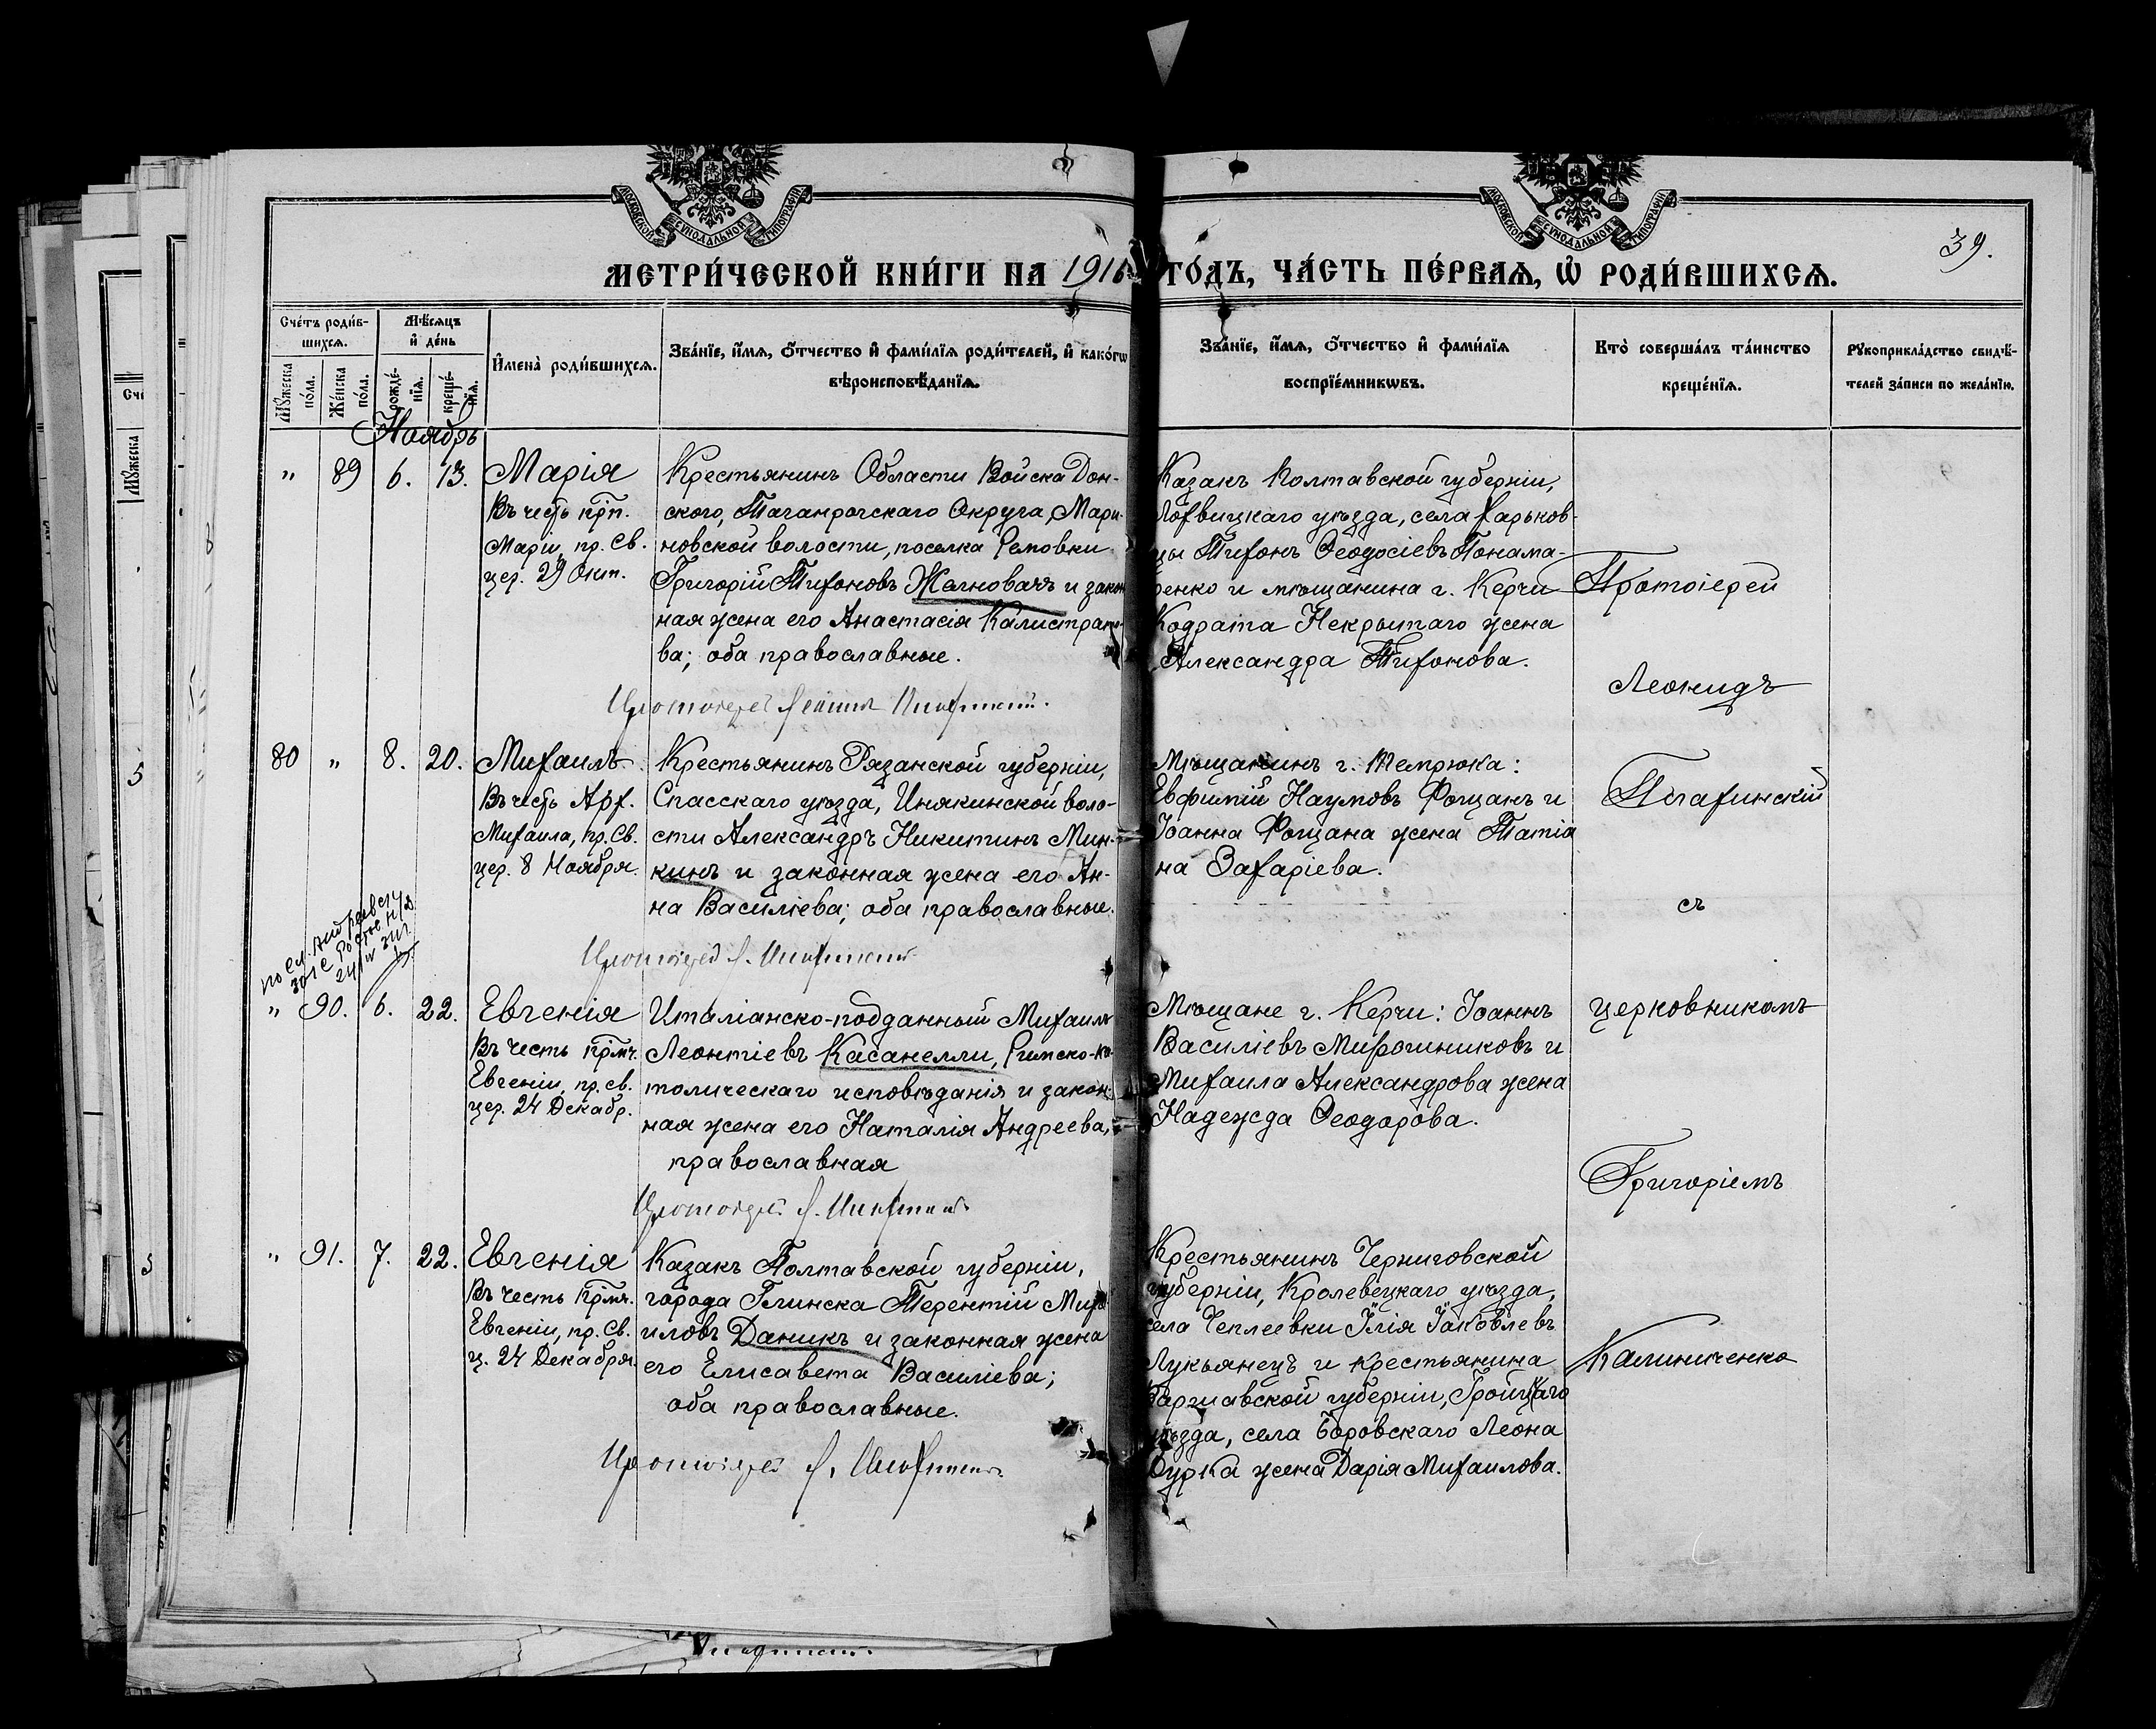 МОСКОВСКОЙ СѴНОДАЛЬНОЙ ТИПОГРАФІИ
МОСКОВСКОЙ СѴНОДАЛЬНОЙ ТИПОГРАФІИ
39.
МЕТРИ́ЧЕСКОЙ КНИ́ГИ НА 1916
ГО́ДЪ, ЧА́СТЬ ПЕ́РВАЯ, Ѡ҆ РОДИ́ВШИХСЯ.
Сче́тъ роди́в-
шихся.
Мѣ́сяцъ
и҆ де́нь
Мꙋ́жеска по́ла.
Же́нска по́ла.
рожде́-нїѧ.
креще́-нїѧ.
И҆мена̀ роди́вшихсѧ.
Зва́нїе, и҆́мѧ, ѻ҆́тчество и҆ фами́лїѧ роди́телей, и҆ како́гѡ
вѣроисповѣ́данїѧ.
Зва́нїе, и҆́мѧ, ѻ҆́тчество и҆ фами́лїѧ
воспрїе́мникѡвъ.
Кто̀ соверша́лъ та́инство
креще́нїѧ.
Рꙋкоприкла́дство свидѣ́-
телей за́писи по жела́нїю.
Ноябрь
" 89 6. 13. Марія
Въ честь прп.
Маріи, пр. св.
цер. 29 Окт.
Крестьянинъ Области Войска Дон-
ского, Таганрогскаго Округа, Мари-
новской волости, поселка Ремовки
Григорій Тихоновъ Жагновачъ и закон
ная жена его Анастасія Калистрато-
ва; оба православные.
Протоіерей
Казакъ Полтавской губерніи,
Лохвицкаго уѣзда, села Харьков-
цы Тихонъ Ѳеодосіевъ Понама-
ренко и мѣщанина г. Керчи
Кодрата Некрытаго жена
Александра Тихонова.
Протоіерей
Леонидъ
80 " 8. 20. Михаилъ
Въ честь Арх.
Михаила, пр. Св.
цер. 8 Ноября.
Крестьянинъ Рязанской губерніи,
Спасскаго уѣзда, Инякинской воло-
сти Александръ Никитинъ Мин-
кинъ и законная жена его Ан-
на Василіева; оба православные.
Протоіерей Л.
Мѣщанинъ г. Темрюка:
Евфимій Наумовъ Фощанъ и
Іоанна Фощана жена Татіа
на Захаріева.
съ
" 90. 6. 22. Евгенія
Въ честь прмч.
Евгеніи, пр. св.
цер. 24 Декабр.
Италіанско-подданный Михаилъ
Леонтіевъ Касанелли, Римско-ка-
толическаго исповѣданія и закон-
ная жена его Наталія Андреева,
православная
Протоіерей Л.
Мѣщане г. Керчи: Іоаннъ
Василіевъ Мирошниковъ и
Михаила Александрова жена
Надежда Ѳеодорова.
церковникомъ
Григоріемъ
" 91. 7. 22. Евгенія
Въ честь прмч.
Евгеніи, пр. Св.
ц. 24 Декабря.
Казакъ Полтавской губерніи,
города Глинска Терентій Миха
иловъ Даникъ и законная жена
его Елисавета Василіева;
оба православные.
Протоіерей Л.
Крестьянинъ Черниговской
губерніи, Кролевецкаго уѣзда,
села Чеплеевки Илія Іаковлевъ
Лукьянецъ и крестьянина
Варшавской губерніи, Гройцкаго
уѣзда, села Боровскаго Леона
жена Дарія Михаилова.
Калиниченко